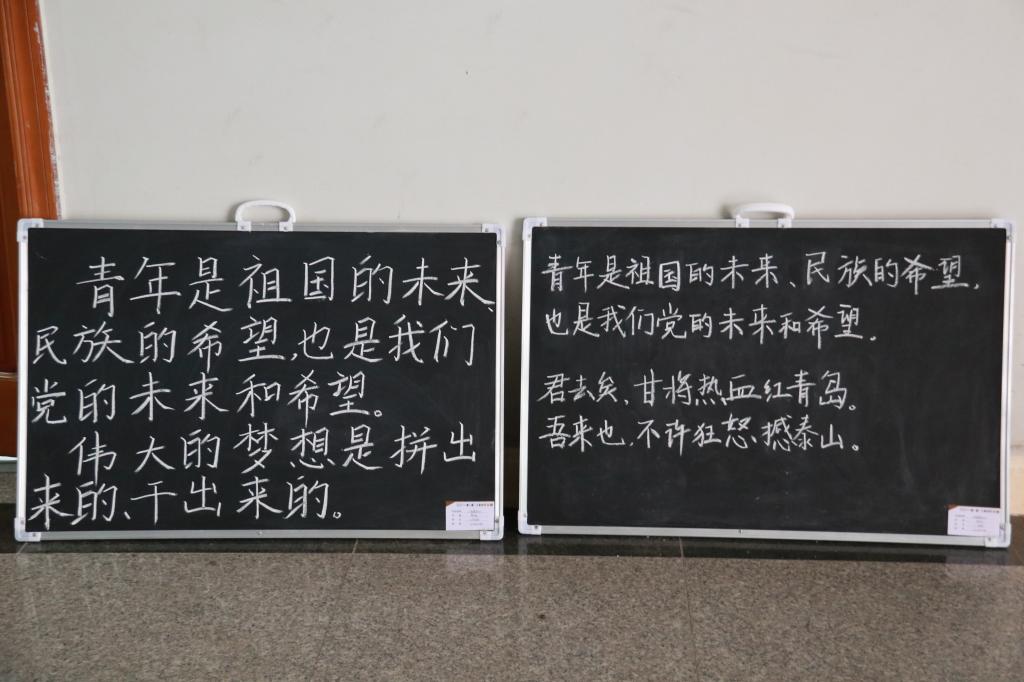 青年是祖国的未来、
民族的希望,也是我们
党的未来和希望。
伟大的梦想是拼出
来的、干出来的。
青年是祖国的未来、民族的希望,
也是我们党的未来和希望。
君去矣、甘将热血红青岛。
吾来也、不许狂怒撼泰山。